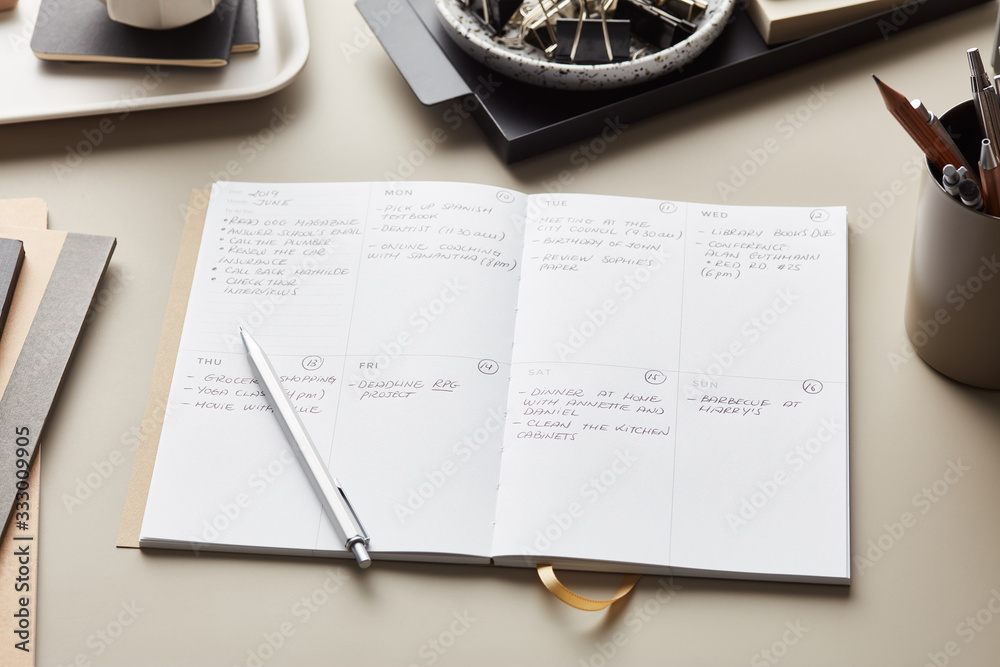 Year: 2019
Month: JUNE
• READ LOG MAGAZINE
• ANSWER SONE'S EMAIL
• CALL THE PLUMBER
• RENEW THE CAR
INSURANCE
• CALL BACK MATHILDE
• CHECK THOR
INTERVIEWS
MON 10
- PICK UP SPANISH
TEXTBOOK
- DENTIST (11:30 am)
- ONLINE COACHING
WITH SAMANTHA (8pm)
TUE 11
- MEETING AT THE
CITY COUNCIL (9:30 am)
- BIRTHDAY OF JOHN
- REVIEW SOPHIE'S
PAPER
WED 12
- LIBRARY BOOKS DUE
- CONFERENCE:
ALAN GUTHMANN
• RED RD #25
(6pm)
THU 13
- GROCERY SHOPPING
- YOGA CLASS (4pm)
- MOVIE WITH
FRI 14
- DEADLINE RPG
PROJECT
SAT 15
- DINNER AT HOME
WITH ANNETTE AND
DANIEL
- CLEAN THE KITCHEN
CABINETS
SUN 16
- BARBECUE AT
HARRY'S
Adobe Stock | #333009905
Adobe Stock